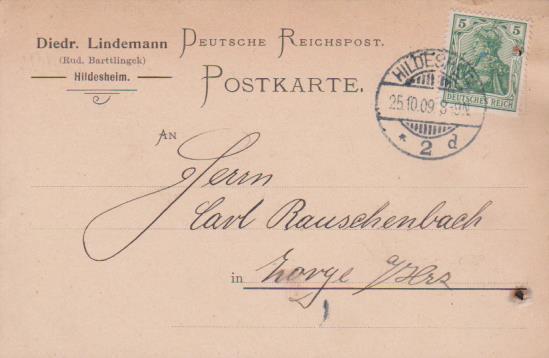 Diedr. Lindemann
(Rud. Barttlingck)
Hildesheim.
DEUTSCHE REICHSPOST.
POSTKARTE.
5 5
DEUTSCHES REICH
HILDESHEIM
25.10.09 8-9N.
* 2 d
AN
Herrn
Carl Rauschenbach
in Zorge a/Hrz